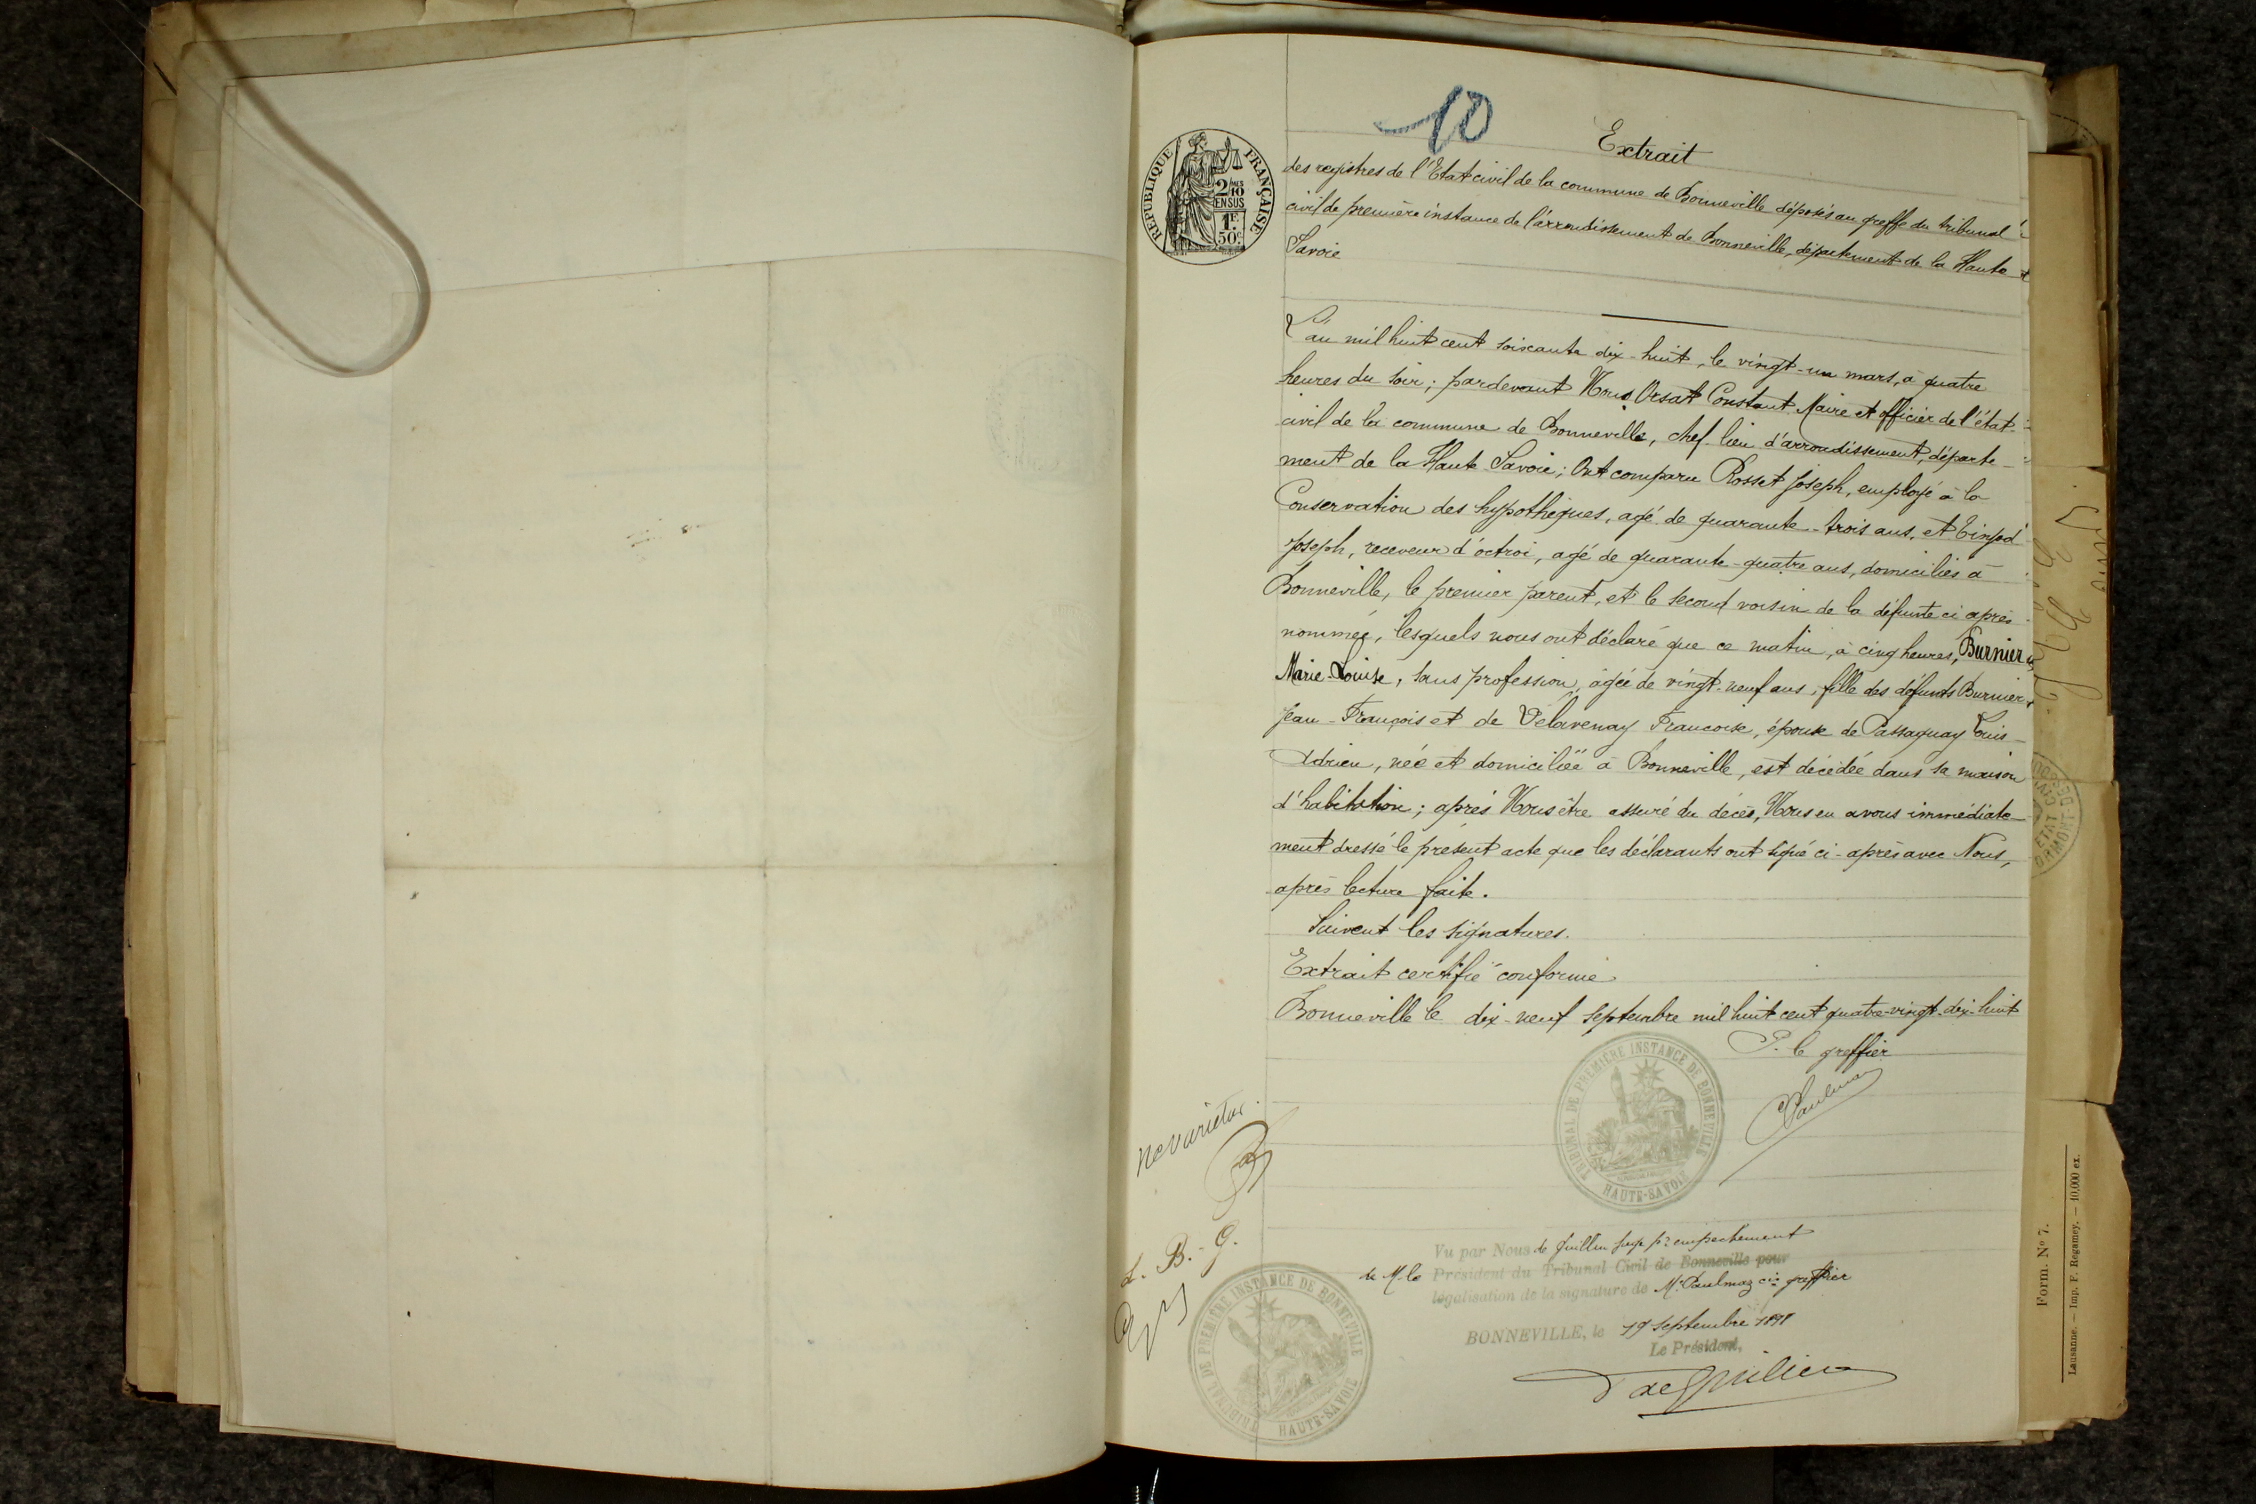 10
Extrait
RÉPUBLIQUE FRANÇAISE
2 MES
10
EN SUS
1F.
50c.
des registres de l'Etat civil de la commune de Bonneville déposés au greffe du tribunal
civil de première instance de l'arrondissement de Bonneville, département de la Haute
Savoie
L'an mil huit cent soixante dix-huit, le vingt-un mars, à quatre
heures du soir; pardevant Nous Orsat Constant Maire et officier de l'état
civil de la commune de Bonneville, chef-lieu d'arrondissement, départe-
ment de la Haute Savoie; Ont comparu Rosset Joseph, employé à la
Conservation des hypothèques, agé de quarante-trois ans, et
Joseph, receveur d'octroi, agé de quarante-quatre ans, domiciliés à
Bonneville, le premier parent, et le second voisin de la défunte ci après
nommée, lesquels nous ont déclaré que ce matin, à cinq heures, Burnier
Marie-Louise, sans profession, agée de vingt-neuf ans, fille des défunts Burnier
Jean-François et de Pelavenay Francoise, épouse de Passaquay Louis-
Adrien, née et domiciliée à Bonneville, est décédée dans sa maison
d'habitation; après Nous être assuré du décès, Nous en avons immédiate-
ment dressé le présent acte que les déclarants ont signé ci-après avec Nous,
après lecture faite.
Suivent les signatures.
Extrait certifié conforme
Bonneville le dix-neuf septembre mil huit cent quatre-vingt-dix-huit
P. le greffier
Paulmaz
TRIBUNAL DE PREMIÈRE INSTANCE DE BONNEVILLE
HAUTE-SAVOIE
ne varietur.
L. B. G.
Vu par Nous de Quillin juge pr empechement
de M. le Président du Tribunal Civil de Bonneville pour
légalisation de la signature de Mr Paulmaz cis greffier
BONNEVILLE, le 19 septembre 1898
Le Président,
TRIBUNAL DE PREMIÈRE INSTANCE DE BONNEVILLE
HAUTE-SAVOIE
Form. No 7.
Lausanne. — Imp. F. Regamey. — 10,000 ex.